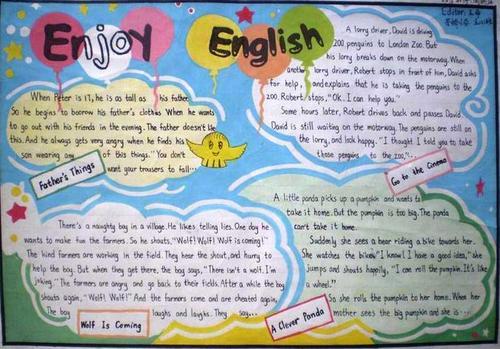 Enjoy English
Editor:
When Peter is 17, he is as tall as his father.
So he begins to boorow his father's clothes When he wants
to go out with his friends in the evening. The father doesn't like
this. And he always gets very angry when he finds his
son wearing any of this things." You don't
want your trousers to fall...
Father's Things
A lorry driver, David is driving
200 penguins to London Zoo. But
his lorry breaks down on the motorway. When
another lorry driver, Robert stops in front of him, David asks
for help, and explains that he is taking the penguins to the
zoo. Robert stops, "OK. I can help you."
Some hours later, Robert drives back and passes David
David is still waiting on the motorway. The penguins are still on
the lorry, and look happy. "I thought I told you to take
those penguins to the zoo."...
Go to the Cinema
There's a naughty boy in a village. He likes telling lies. One day he
wants to make fun the farmers. So he shouts, "Wolf! Wolf! Wolf is coming!"
The kind farmers are working in the field. They hear the shout, and hurry to
help the boy. But when they get there, the boy says, "There isn't a wolf. I'm
joking." The farmers are angry and go back to their fields. After a while the boy
shouts again, "Wolf! Wolf!" And the farmers come and are cheated again.
The boy laughs and laughs. They say...
Wolf Is Coming
A little panda picks up a pumpkin and wants to
take it home. But the pumpkin is too big. The panda
can't take it home.
Suddenly she sees a bear riding a bike towards her.
She watches the bike. "I know! I have a good idea," she
jumps and shouts happily, "I can roll the pumpkin. It's like
a wheel."
So she rolls the pumpkin to her home. When her
mother sees the big pumpkin and she is...
A Clever Panda